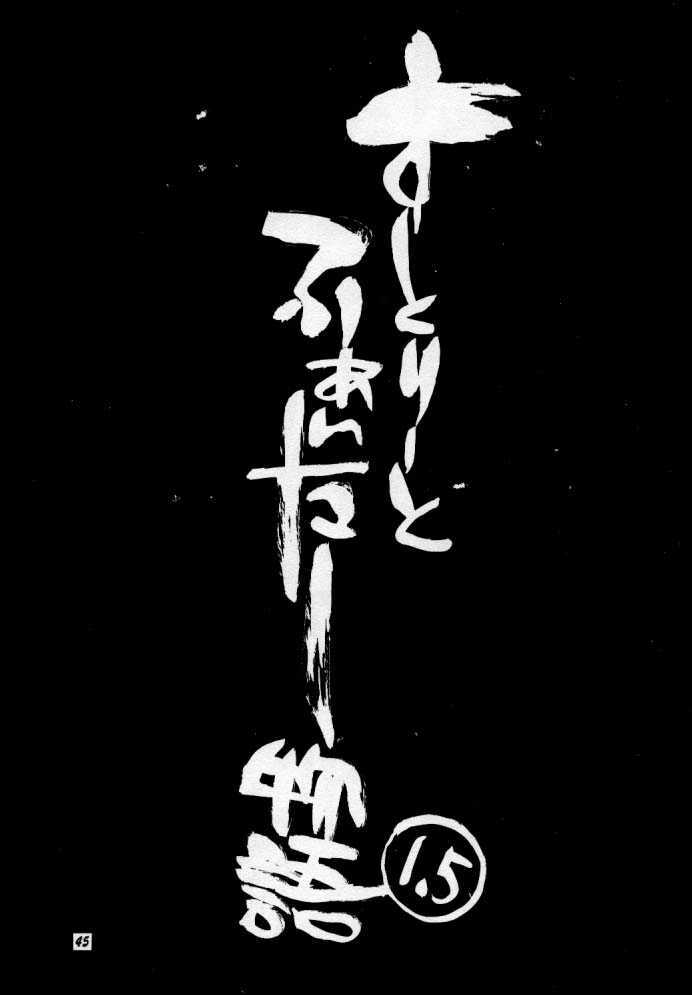 すとりーと
ふぁいたー物語
1.5
45